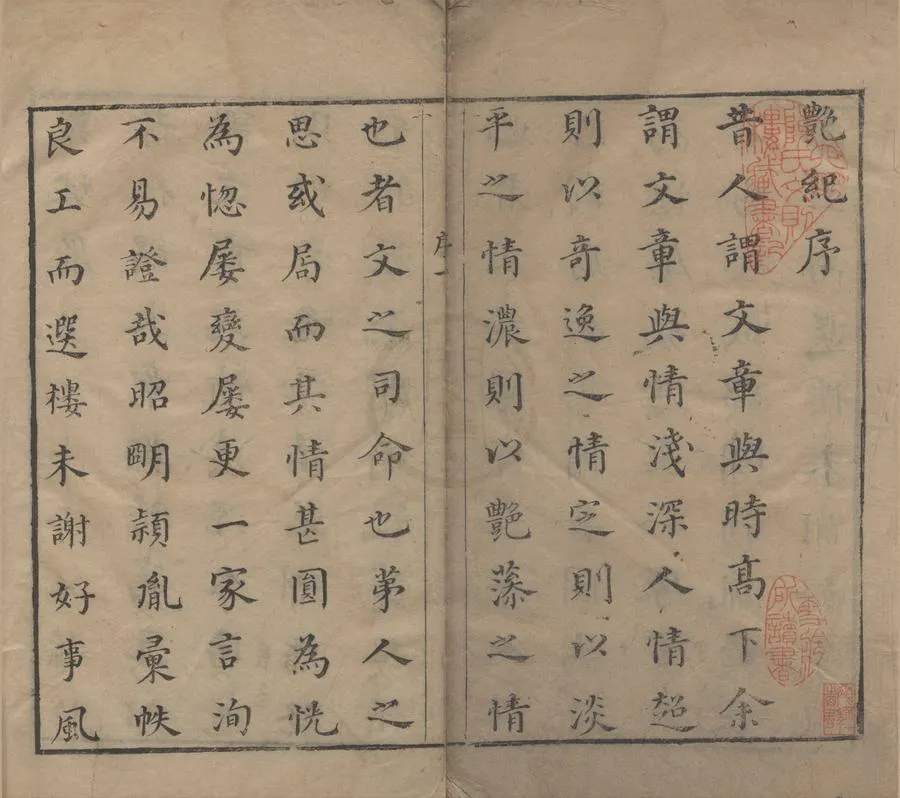 艷紀序
昔人謂文章與時高下余
謂文章與情淺深人情超
則以奇逸之情定則以淡
平之情濃則以艷藻之情
序一
也者文之司命也苐人之
思或局而其情甚圓為恍
為惚屡變屡更一家言洵
不易證哉昭明頴胤彚帙
良工而選樓未謝好事風